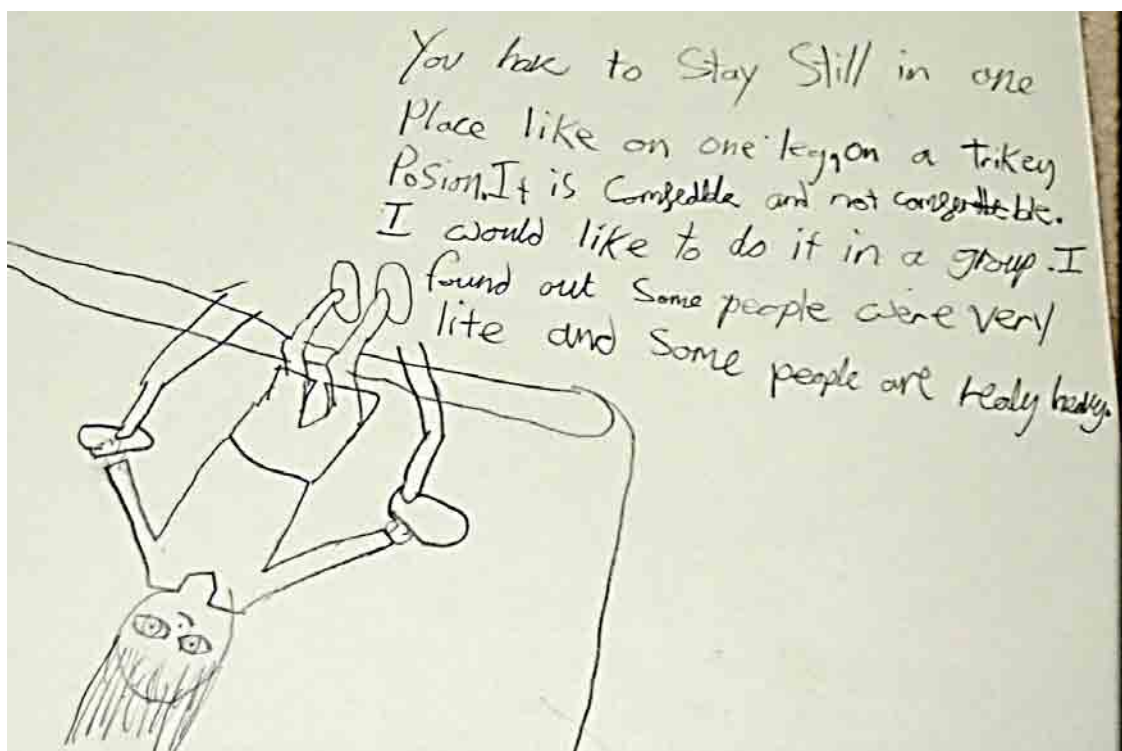 You have to Stay Still in one
Place like on one legg, on a trikey
Posion. It is Comfedble and not comferttble.
I would like to do it in a group. I
found out Some people were very
lite and Some people are realy heavy.